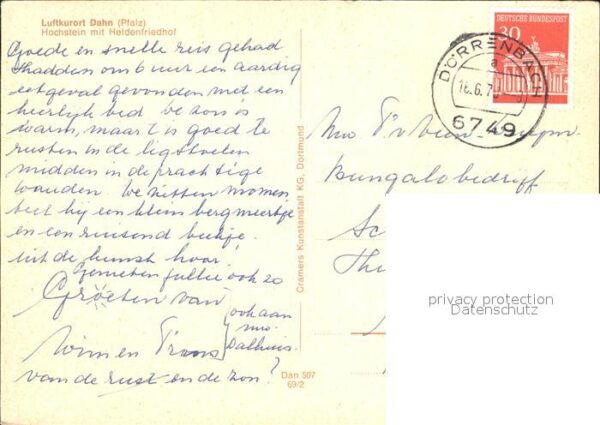 Luftkurort Dahn (Pfalz)
Hochstein mit Heldenfriedhof
Goede en snelle reis gehad
Hadden om 6 uur een aardig
eetgeval gevonden met een
heerlijk bed. De zon is
warm, maar 't is goed te
rusten in de ligstoelen
midden in de prachtige
wouden. We zitten momen
teel bij een klein bergmeertje
en een ruisend beekje.
uit de kunst hoor!
Genieten jullie ook zo
Groeten van
Wim en Frans
ook aan
mw.
Dalhuis.
van de rust en de zon?
Dan 597
69/2
Cramers Kunstanstalt KG, Dortmund
DEUTSCHE BUNDESPOST
30
DÖRRENBACH
a
16.6.7
6749
Bungalobedrijf
privacy protection
Datenschutz